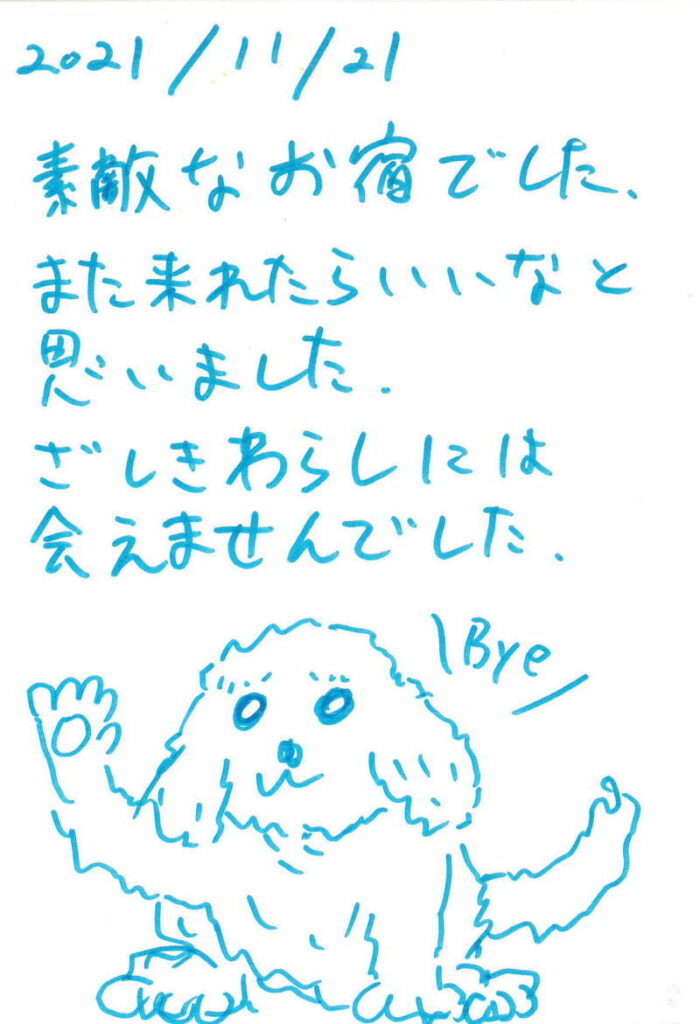 2021/11/21
素敵なお宿でした、
また来れたらいいなと
思いました.
ざしきわらしには
会えませんでした.
\Bye/